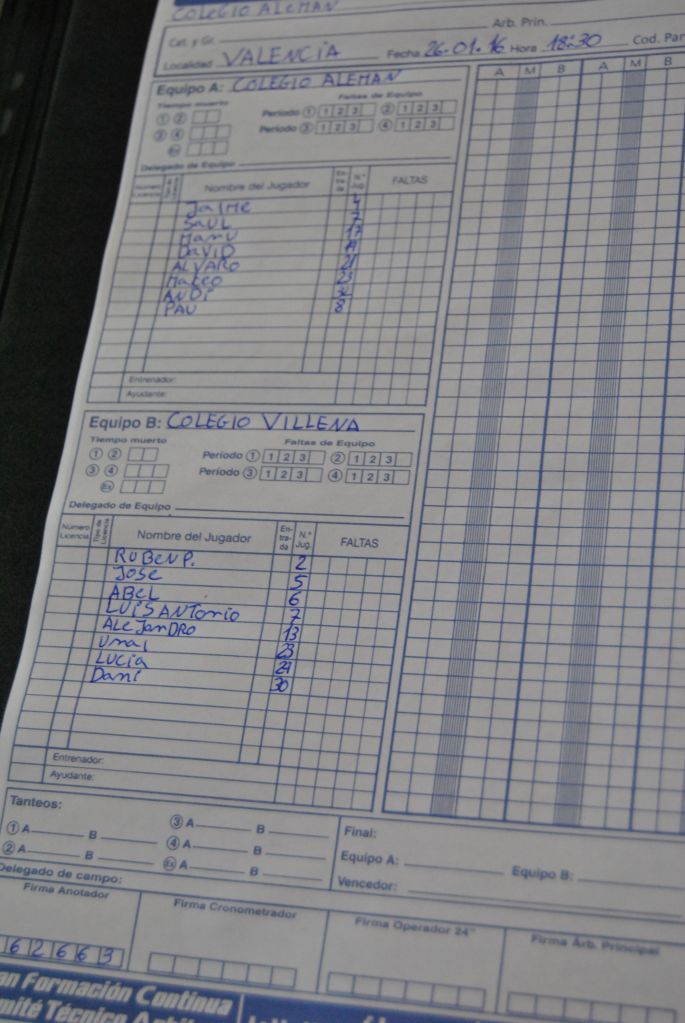 COLEGIO ALEMAN
Arb. Prin.
Cat. y Gr.
Localidad VALENCIA Fecha 26-01-16 Hora 18:30 Cod. Par
Equipo A: COLEGIO ALEMAN
Tiempo muerto Faltas de Equipo
① ② Período ① 1 2 3 ② 1 2 3
③ ④ Período ③ 1 2 3 ④ 1 2 3
Ex
Delegado de Equipo
Número Licencia Tipo de Licencia Nombre del Jugador En-tra-da N.º Jug. FALTAS
JAIME 4
SAUL 7
MANU 17
DAVID
ALVARO 21
MATEO 23
ANDI
PAU 8
Entrenador:
Ayudante:
Equipo B: COLEGIO VILLENA
Tiempo muerto Faltas de Equipo
① ② Período ① 1 2 3 ② 1 2 3
③ ④ Período ③ 1 2 3 ④ 1 2 3
Ex
Delegado de Equipo
Número Licencia Tipo de Licencia Nombre del Jugador En-tra-da N.º Jug. FALTAS
RUBEN P. 2
JOSE 5
ABEL 6
LUIS ANTONIO 7
ALEJANDRO 13
UNAI 23
LUCIA 24
DANI 30
Entrenador:
Ayudante:
A M B A M B
Tanteos:
① A B ③ A B
② A B ④ A B
Ex A B
Final:
Equipo A: Equipo B:
Vencedor:
Delegado de campo:
Firma Anotador Firma Cronometrador Firma Operador 24" Firma Árb. Principal
62669
an Formación Continua
mité Técnico